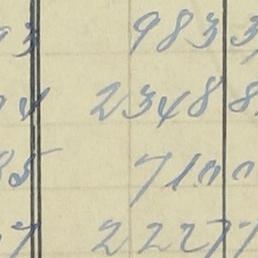 93 983 3
94 2348 8
85 7100
7 2227 7